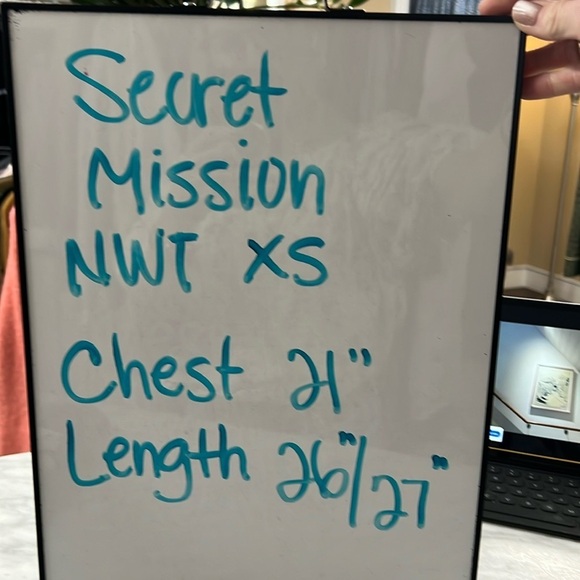 Secret
Mission
NWT XS
Chest 21"
Length 26"/27"